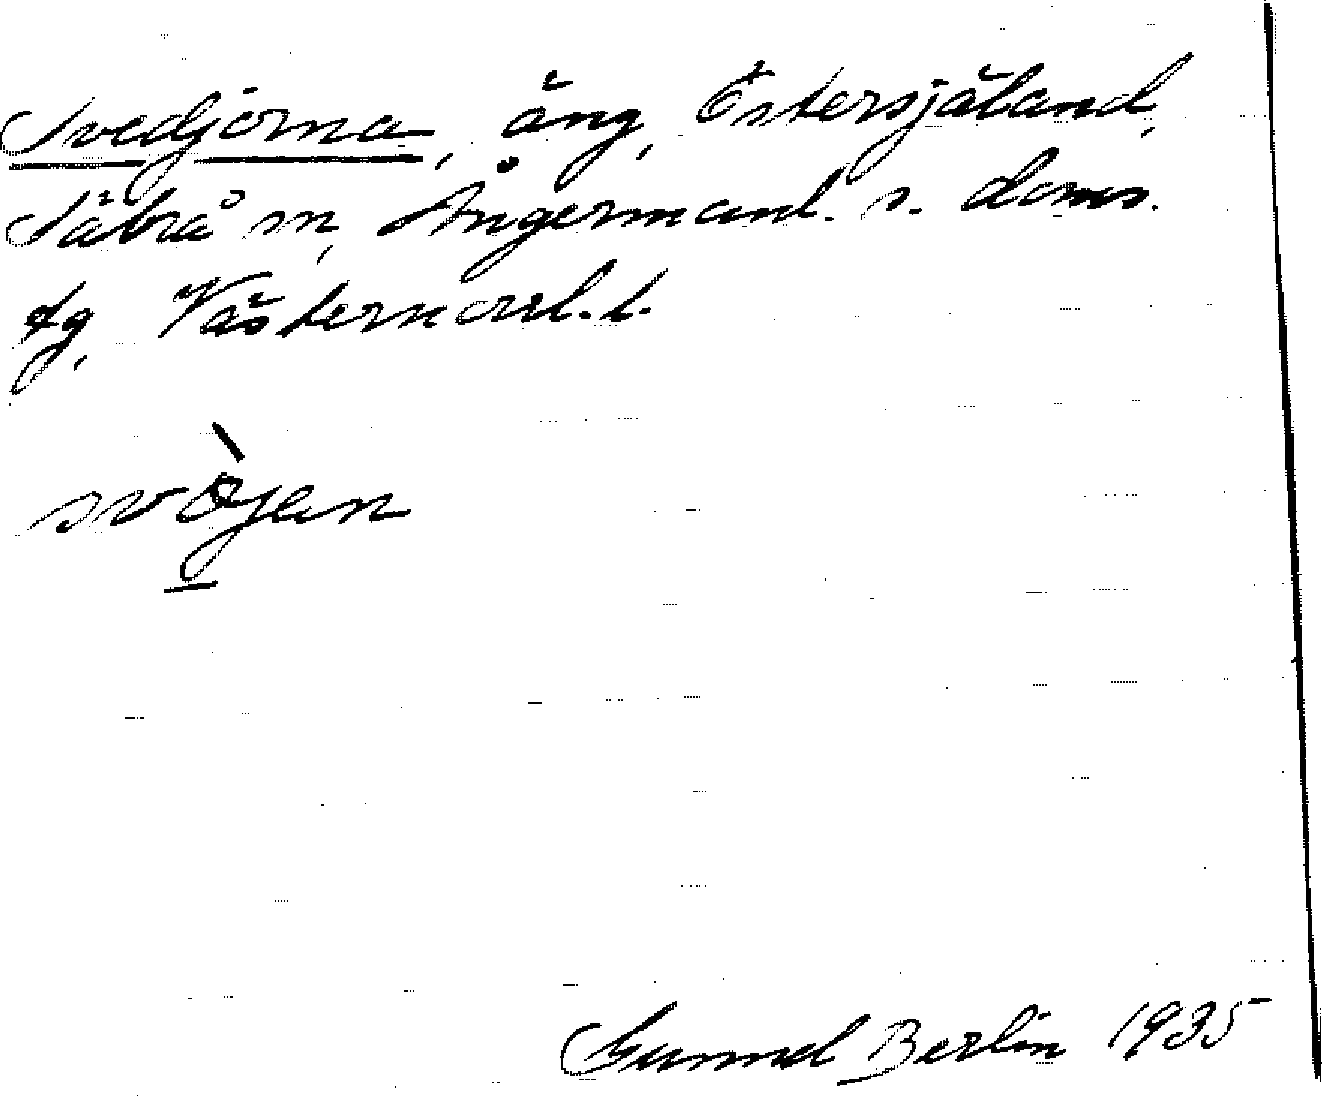 Svedjorna, äng, Östersjäland,
Säbrå sn, Ångermanl. s. doms.
tg, Västernorrl. l.
svò̱jan
Gunnel Berlin 1935